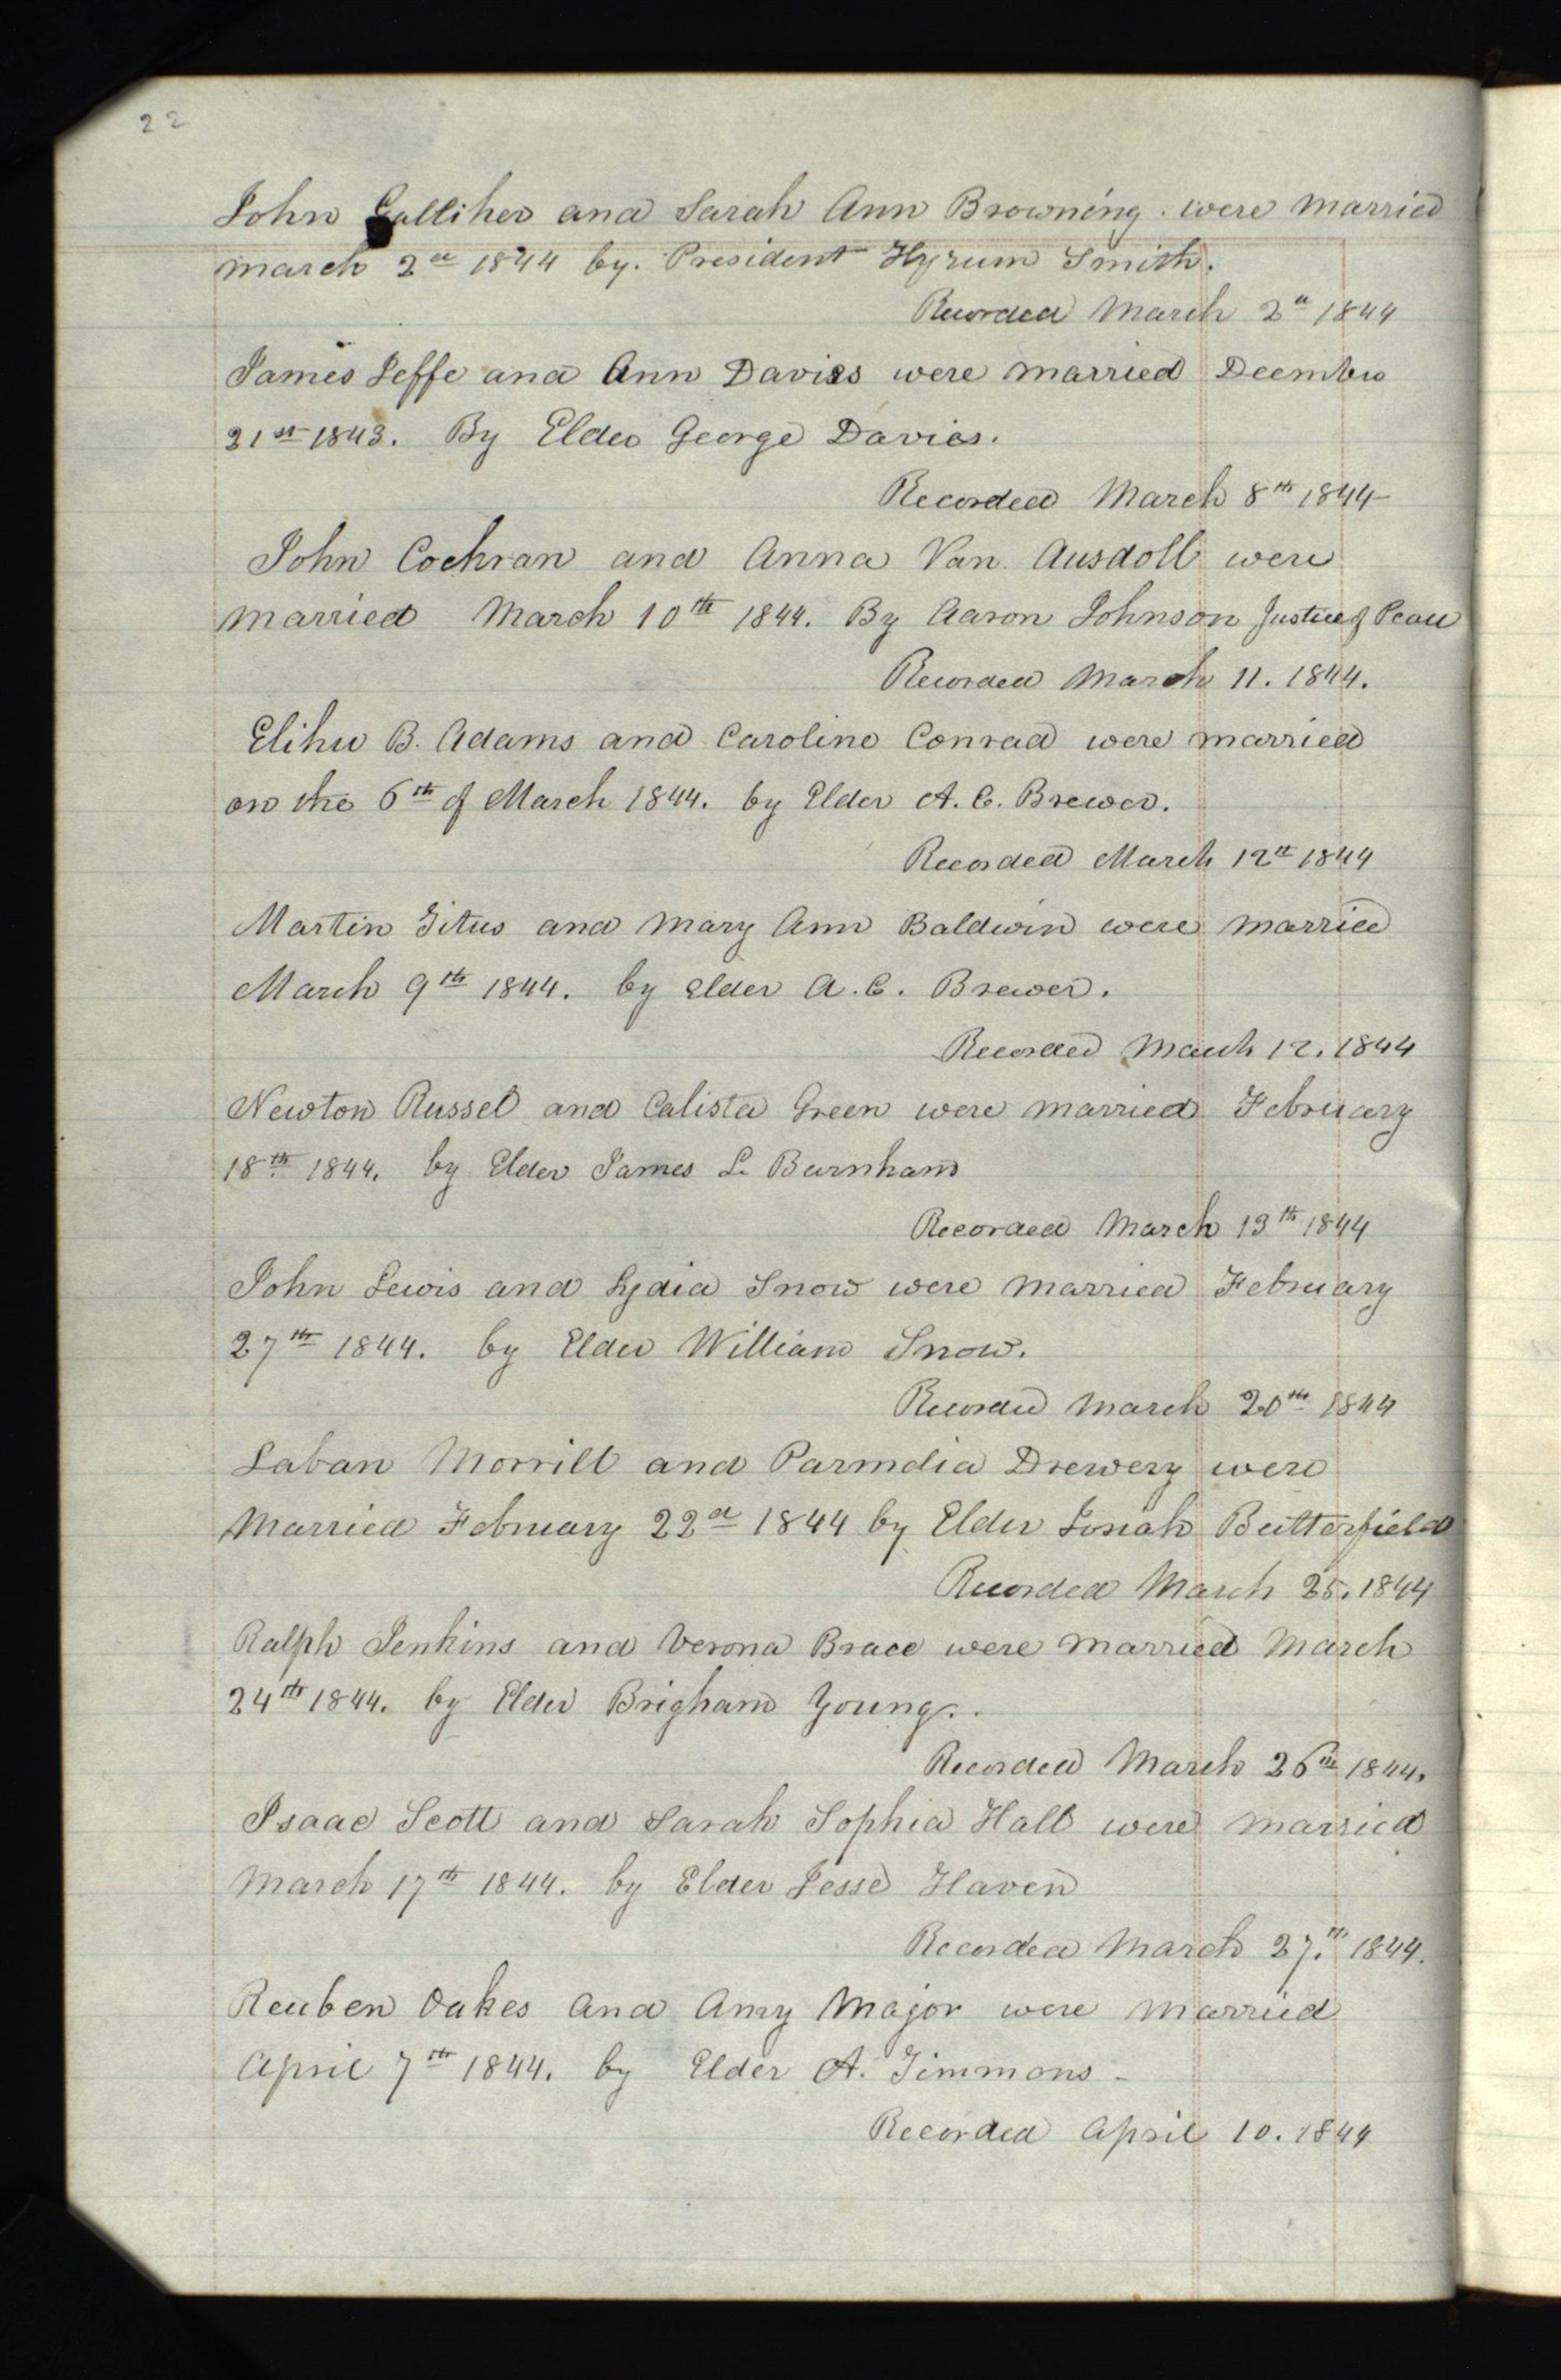 22
John Galliher and Sarah Ann Browning. were married
march 2d 1844 by. President Hyrum Smith.
Recorded March 2d 1844
James Jeffe and Ann Davies were married December
21st 1843. By Elder George Davies.
Recorded March 8th 1844
John Cochran and Anna Van Ausdoll were
married March 10th 1844. By Aaron Johnson Justice of Peace
Recorded March 11. 1844.
Elihu B. Adams and Caroline Conrad were married
on the 6th of March 1844. by Elder A. C. Brewer.
Recorded March 12th 1844
Martin Titus and Mary Ann Baldwin were married
March 9th 1844. by elder A. C. Brewer.
Recorded March 12. 1844
Newton Russel and Calista Green were married February
18th 1844. by Elder James L. Burnham
Recorded March 13th 1844
John Lewis and Lydia Snow were married February
27th 1844. by Elder William Snow.
Recorded March 20th 1844
Laban Morrill and Parmelia Drewery were
Married February 22d 1844 by Elder Josiah Butterfield
Recorded March 25. 1844
Ralph Jenkins and Verona Brace were married March
24th 1844. by Elder Brigham Young.
Recorded March 26th 1844.
Isaac Scott and Sarah Sophia Hall were married
March 17th 1844. by Elder Jesse Haven
Recorded March 27th 1844.
Reuben Oakes and Amy Major were married
April 7th 1844. by Elder A. Timmons
Recorded April 10. 1844